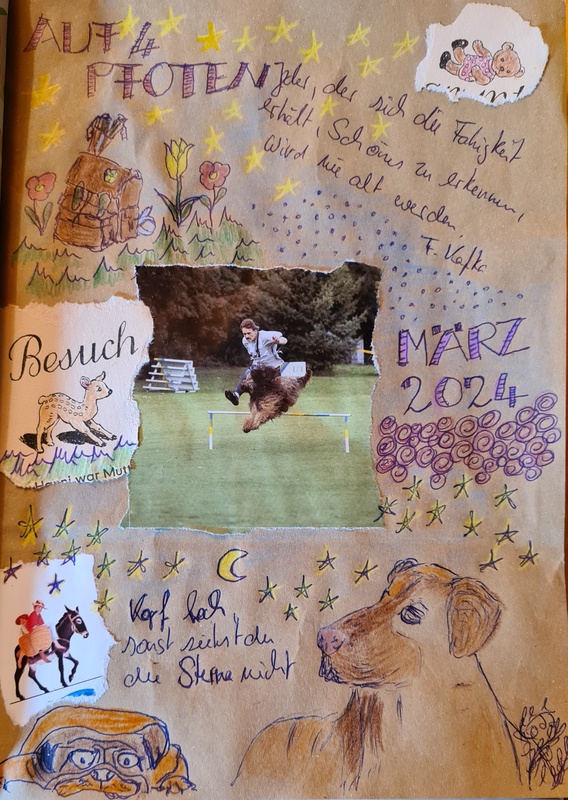 AUF 4
PFOTEN
Jeder, der sich die Fähigkeit
erhält, Schönes zu erkennen,
wird nie alt werden.
F. Kafka
Besuch
Henni war Mutt
MÄRZ
2024
Kopf hoch,
sonst siehst du
die Sterne nicht